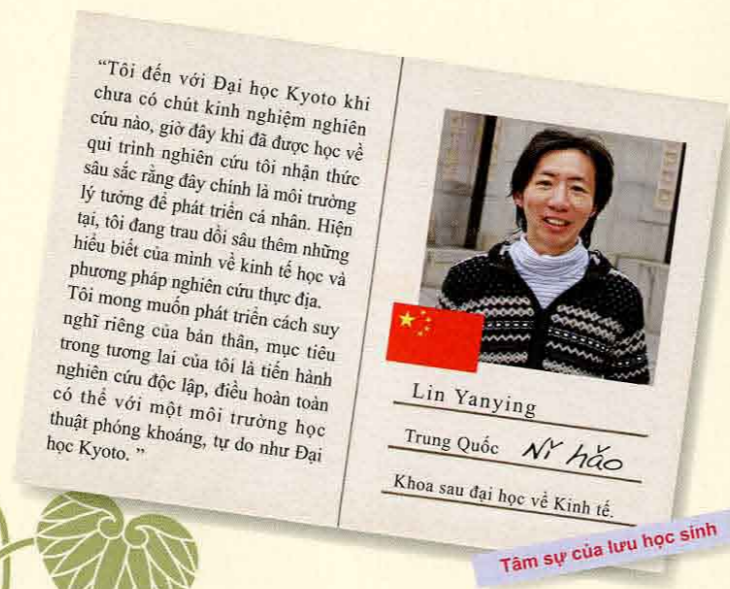 “Tôi đến với Đại học Kyoto khi
chưa có chút kinh nghiệm nghiên
cứu nào, giờ đây khi đã được học về
qui trình nghiên cứu tôi nhận thức
sâu sắc rằng đây chính là môi trường
lý tưởng để phát triển cá nhân. Hiện
tại, tôi đang trau dồi sâu thêm những
hiểu biết của mình về kinh tế học và
phương pháp nghiên cứu thực địa.
Tôi mong muốn phát triển cách suy
nghĩ riêng của bản thân, mục tiêu
trong tương lai của tôi là tiến hành
nghiên cứu độc lập, điều hoàn toàn
có thể với một môi trường học
thuật phóng khoáng, tự do như Đại
học Kyoto. ”
Lin Yanying
Trung Quốc Nǐ hǎo
Khoa sau đại học về Kinh tế.
Tâm sự của lưu học sinh